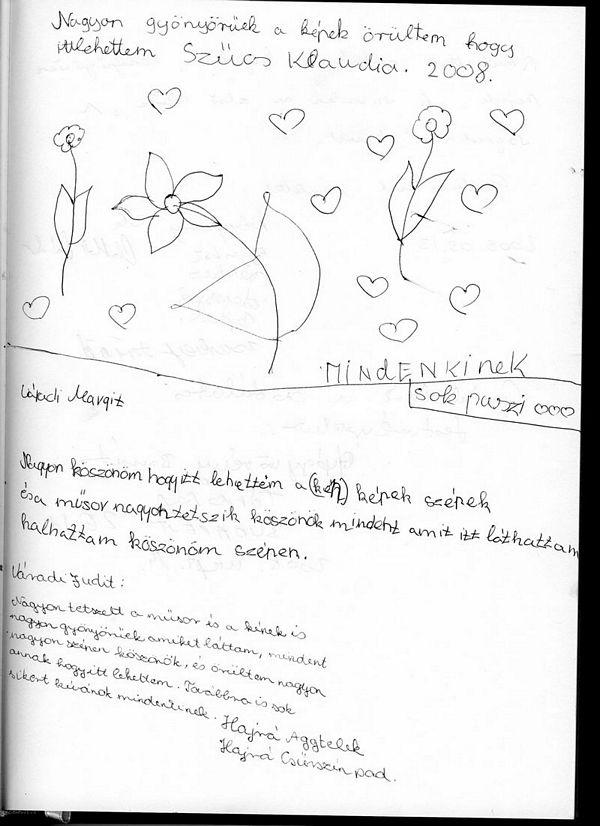 Nagyon gyönyörűek a képek örültem hogy
ittlehettem Szűcs Klaudia. 2008.
MINDENKINEK
sok puszi ooo
Váradi Margit
Nagyon köszönöm hogyitt lehettem a (kéη) képek szépek
ésa műsor nagyontetszik köszönök mindent amit itt láthattam
halhattam köszönöm szépen.
Váradi Judit:
Nagyon tetszett a műsor és a képek is
nagyon gyönyörűek amiket láttam, mindent
nagyon szépen köszönök, és örültem nagyon
annak hogyitt lehettem. Továbbra is sok
sikert kívánok mindenkinek. Hajrá Aggtelek
Hajrá Csűrszínpad.